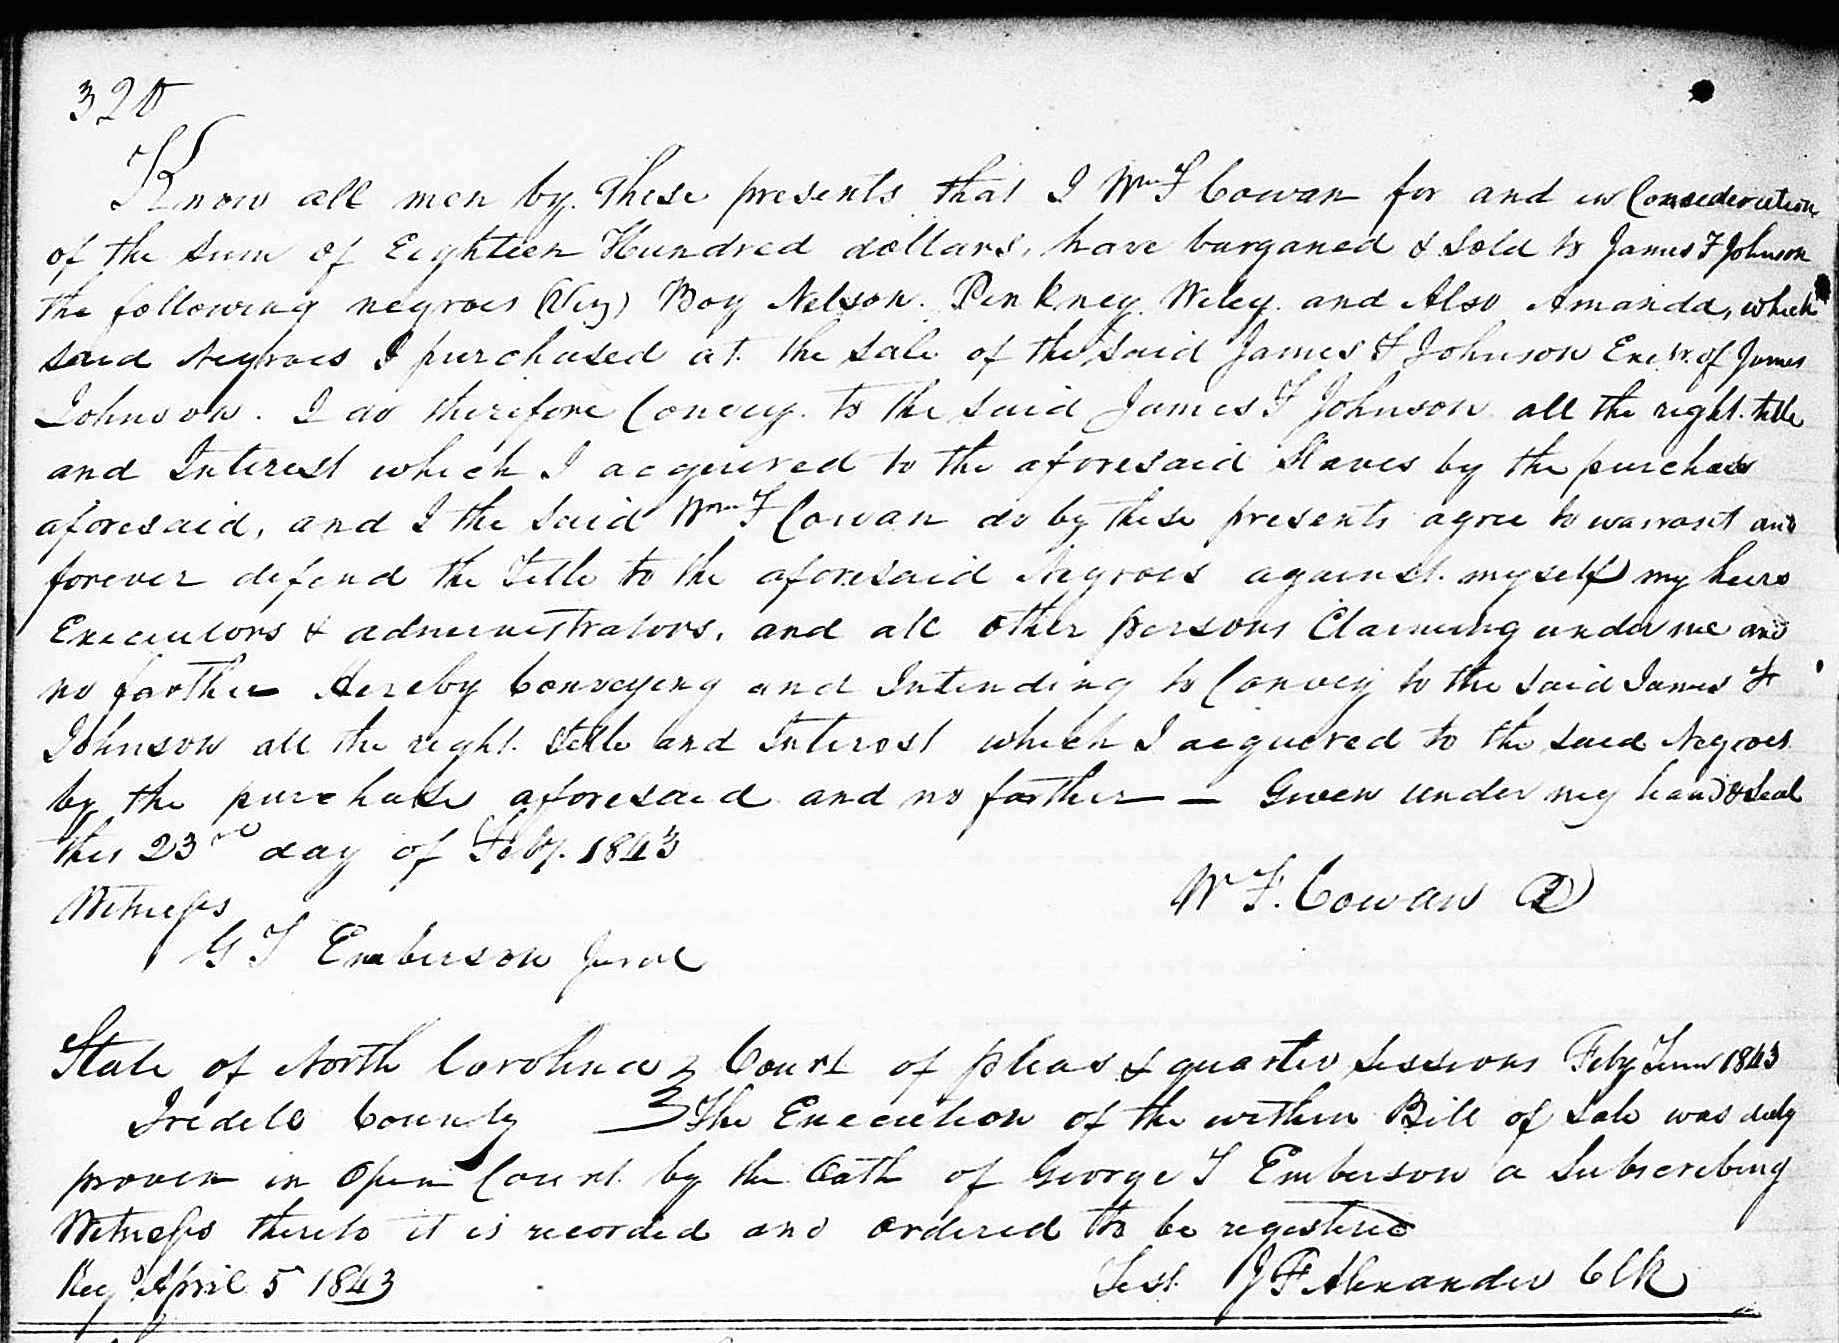 320
Know all men by These presents that I Wm F Cowan for and in Consideration
of the Sum of Eighteen Hundred dollars, have barganed & Sold to James F Johnson
the following negroes (Viz) Boy Nelson. Pinkney. Wiley. and Also Amanda, which
said Negroes I purchased at the Sale of the Said James F Johnson Exetr. of James
Johnson. I do therefore Convey. to the Said James F Johnson all the right. title
and Interest which I acquired to the aforesaid Slaves by the purchase
aforesaid, and I the Said Wm F Cowan do by these presents agree to warrant and
forever defend the Title to the aforesaid Negroes against. myself my heirs
Executors & administrators, and all other persons Claiming under me and
no farther Hereby Conveying and Intending to Convey to the Said James F
Johnson all the right. title and Interest which I acquired to the said Negroes
by the purchase aforesaid and no farther — Given under my hand & Seal
this 23rd day of Feby. 1843
W F. Cowan
Witness
G T Emberson Jurat
State of North Carolina } Court of pleas & quarter Sessions Feby Term 1843
Iredell County } The Execution of the within Bill of Sale was duly
proven in Open Court. by the Oath of George T Emberson a Subscribing
Witness thereto it is recorded and ordered to be registered
Reg April 5 1843
Test. J F Alexander Clk